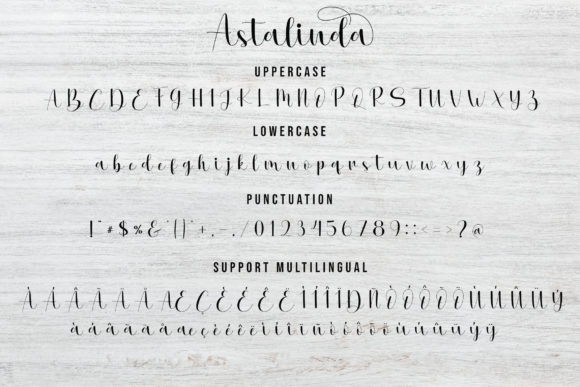 Astalinda
UPPERCASE
A B C D E F G H I J K L M N O P Q R S T U V W X Y Z
LOWERCASE
a b c d e f g h i j k l m n o p q r s t u v w x y z
PUNCTUATION
! " # $ % & ' ( ) * + , - . / 0 1 2 3 4 5 6 7 8 9 : ; < = > ? @
SUPPORT MULTILINGUAL
À Á Â Ã Ä Å Æ Ç È É Ê Ë Ì Í Î Ï Ð Ñ Ò Ó Ô Õ Ö Ù Ú Û Ü Ý
à á â ã ä å æ ç è é ê ë ì í î ï ñ ò ó ô õ ö ù ú û ü ý ÿ